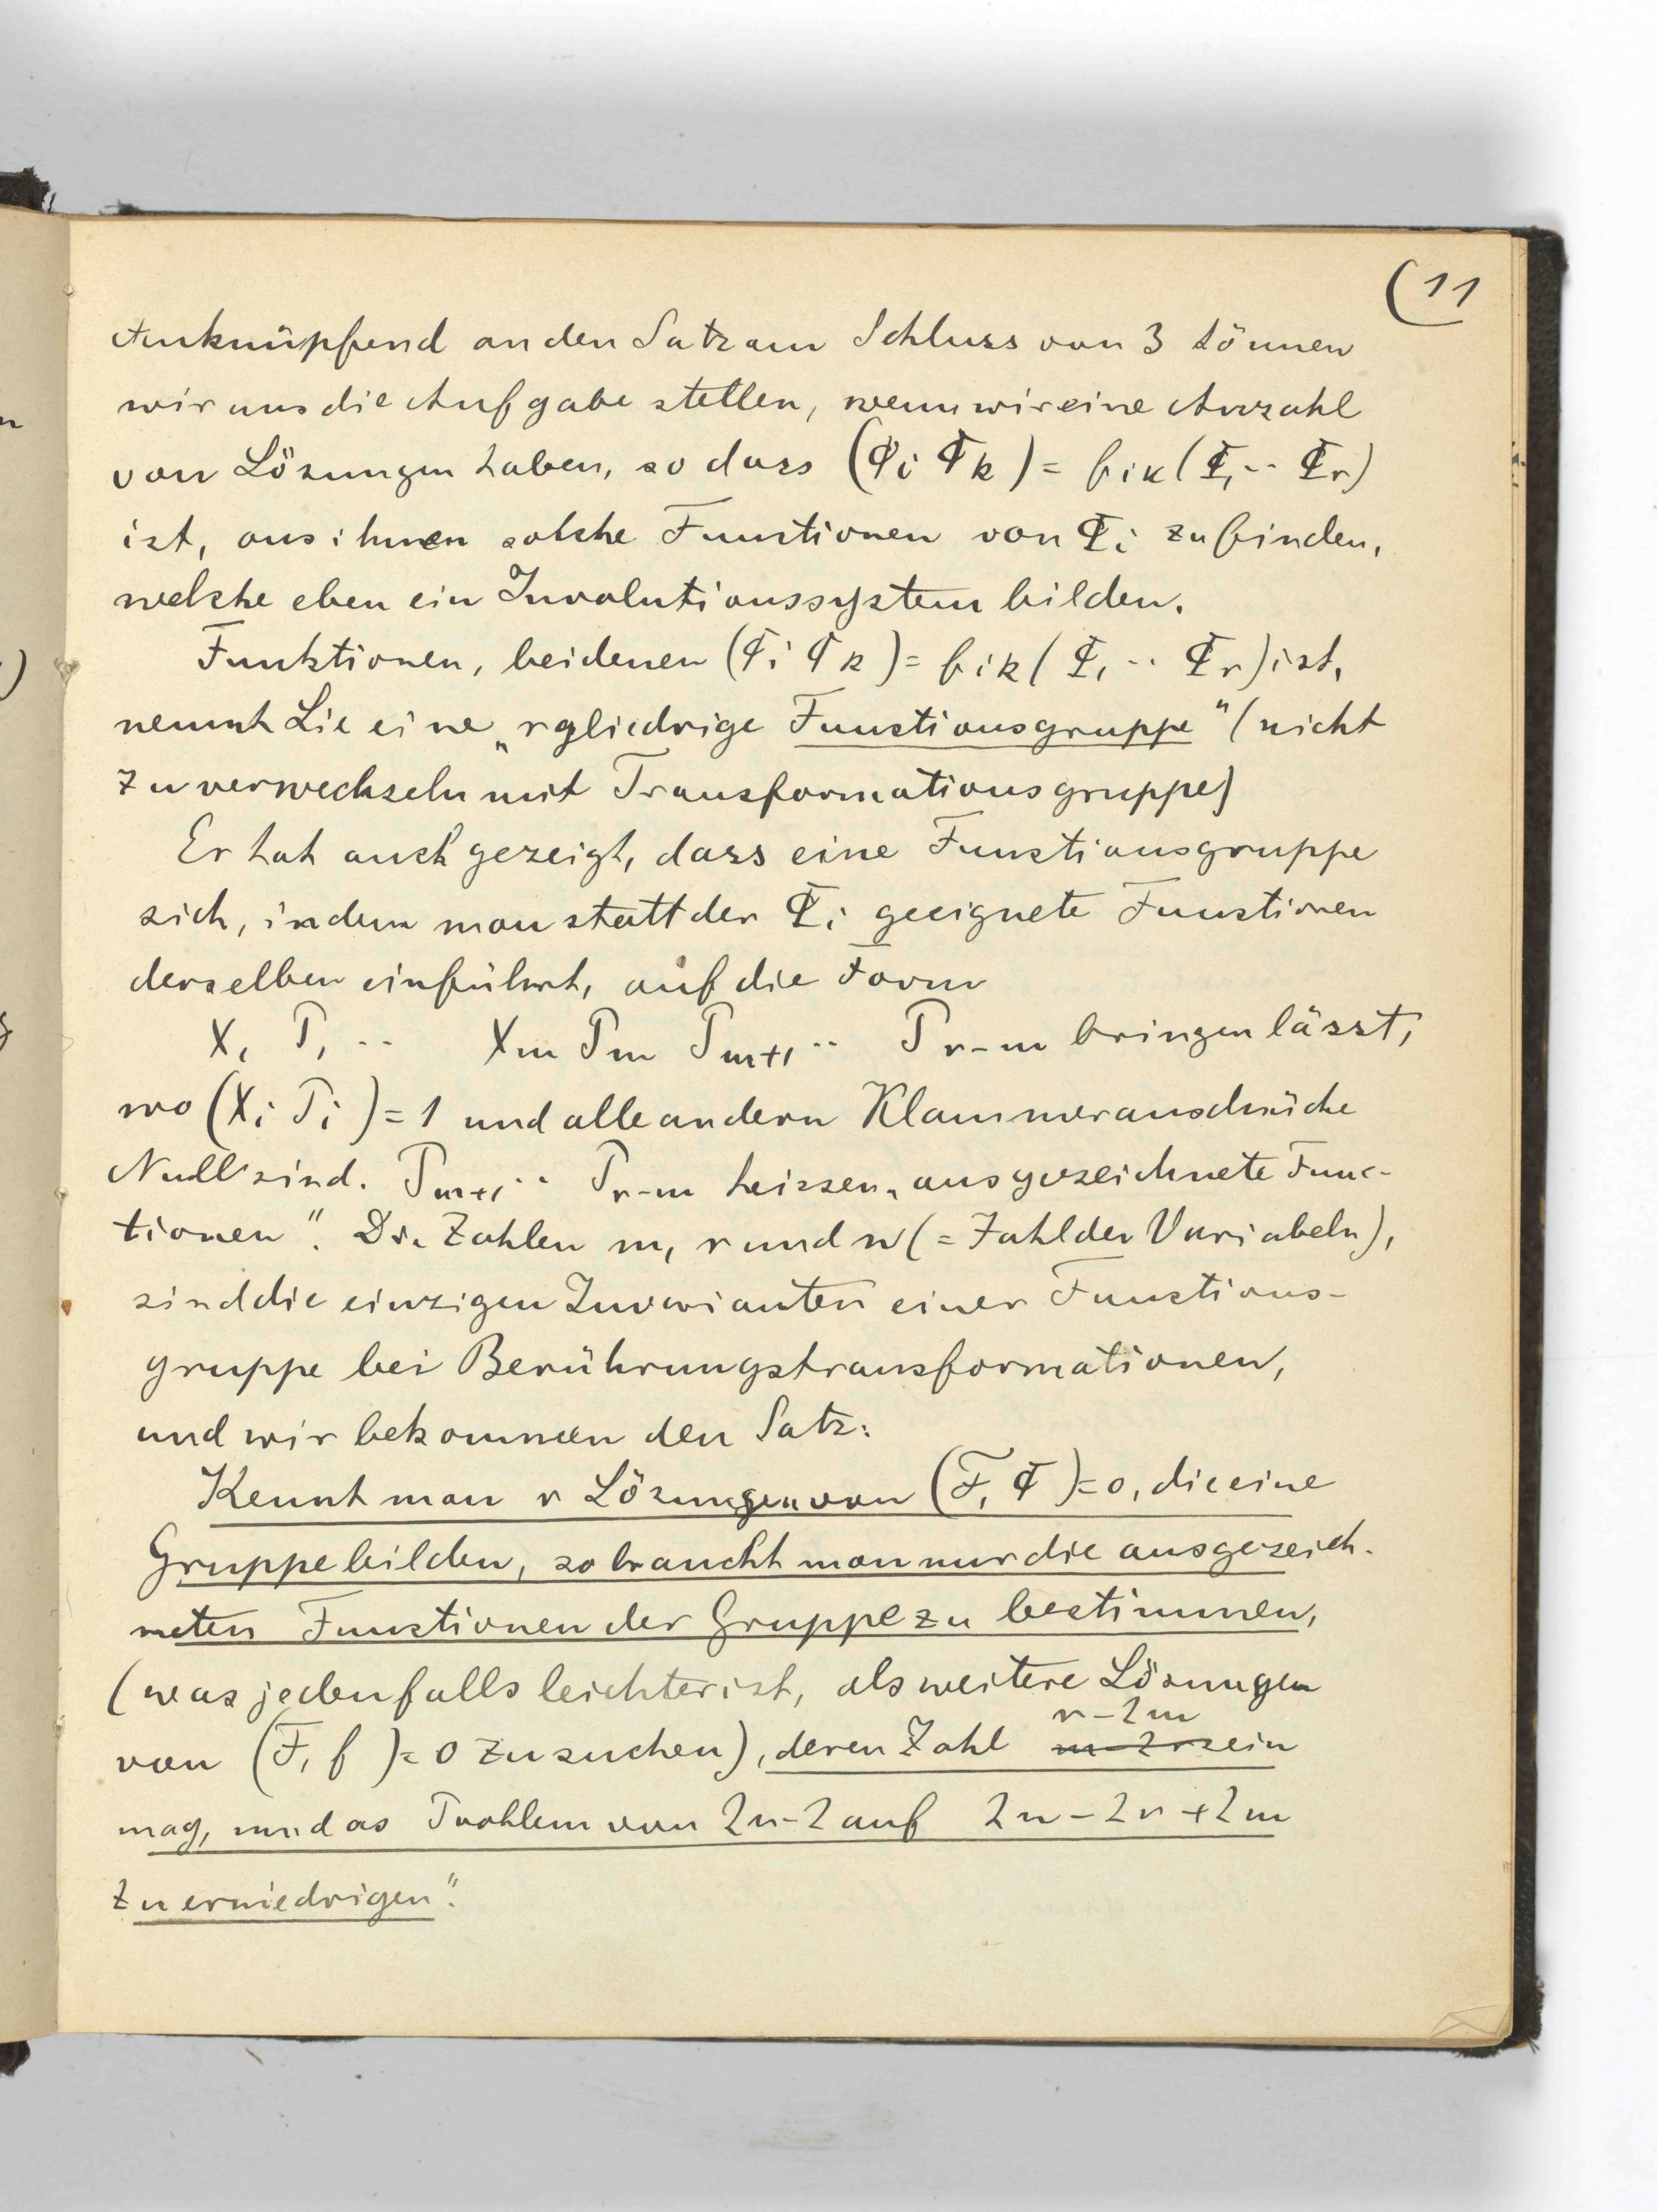 (11
Anknüpfend an den Satz am Schluss von 3 können
wir uns die Aufgabe stellen, wenn wir eine Anzahl
von Lösungen haben, so dass (Φi Φk) = fik (Φ1 ·· Φr)
ist, aus ihnen solche Functionen von Φi zu finden,
welche eben ein Involutionssystem bilden.
Funktionen, bei denen (Φi Φk) = fik (Φ1 ·· Φr) ist,
nennt Lie eine „rgliedrige Functionsgruppe" (nicht
zu verwechseln mit Transformationsgruppe)
Er hat auch gezeigt, dass eine Functionsgruppe
sich, indem man statt der Φi geeignete Functionen
derselben einführt, auf die Form
X1 P1 ·· Xm Pm Pm+1 ·· Pr-m bringen lässt,
wo (Xi Pi) = 1 und alle andern Klammerausdrücke
Null sind. Pm+1 ·· Pr-m heissen „ausgezeichnete Func-
tionen". Die Zahlen m, r und n (= Zahl der Variabeln),
sind die einzigen Invarianten einer Functions-
gruppe bei Berührungstransformationen,
und wir bekommen den Satz:
Kennt man r Lösungen von (F, Φ) = 0, die eine
Gruppe bilden, so braucht man nur die ausgezeich-
neten Functionen der Gruppe zu bestimmen,
(was jedenfalls leichter ist, als weitere Lösungen
r-2m
von (F, f) = 0 zu suchen), deren Zahl m-2r sein
mag, um das Problem von 2n-2 auf 2n-2r+2m
zu erniedrigen".